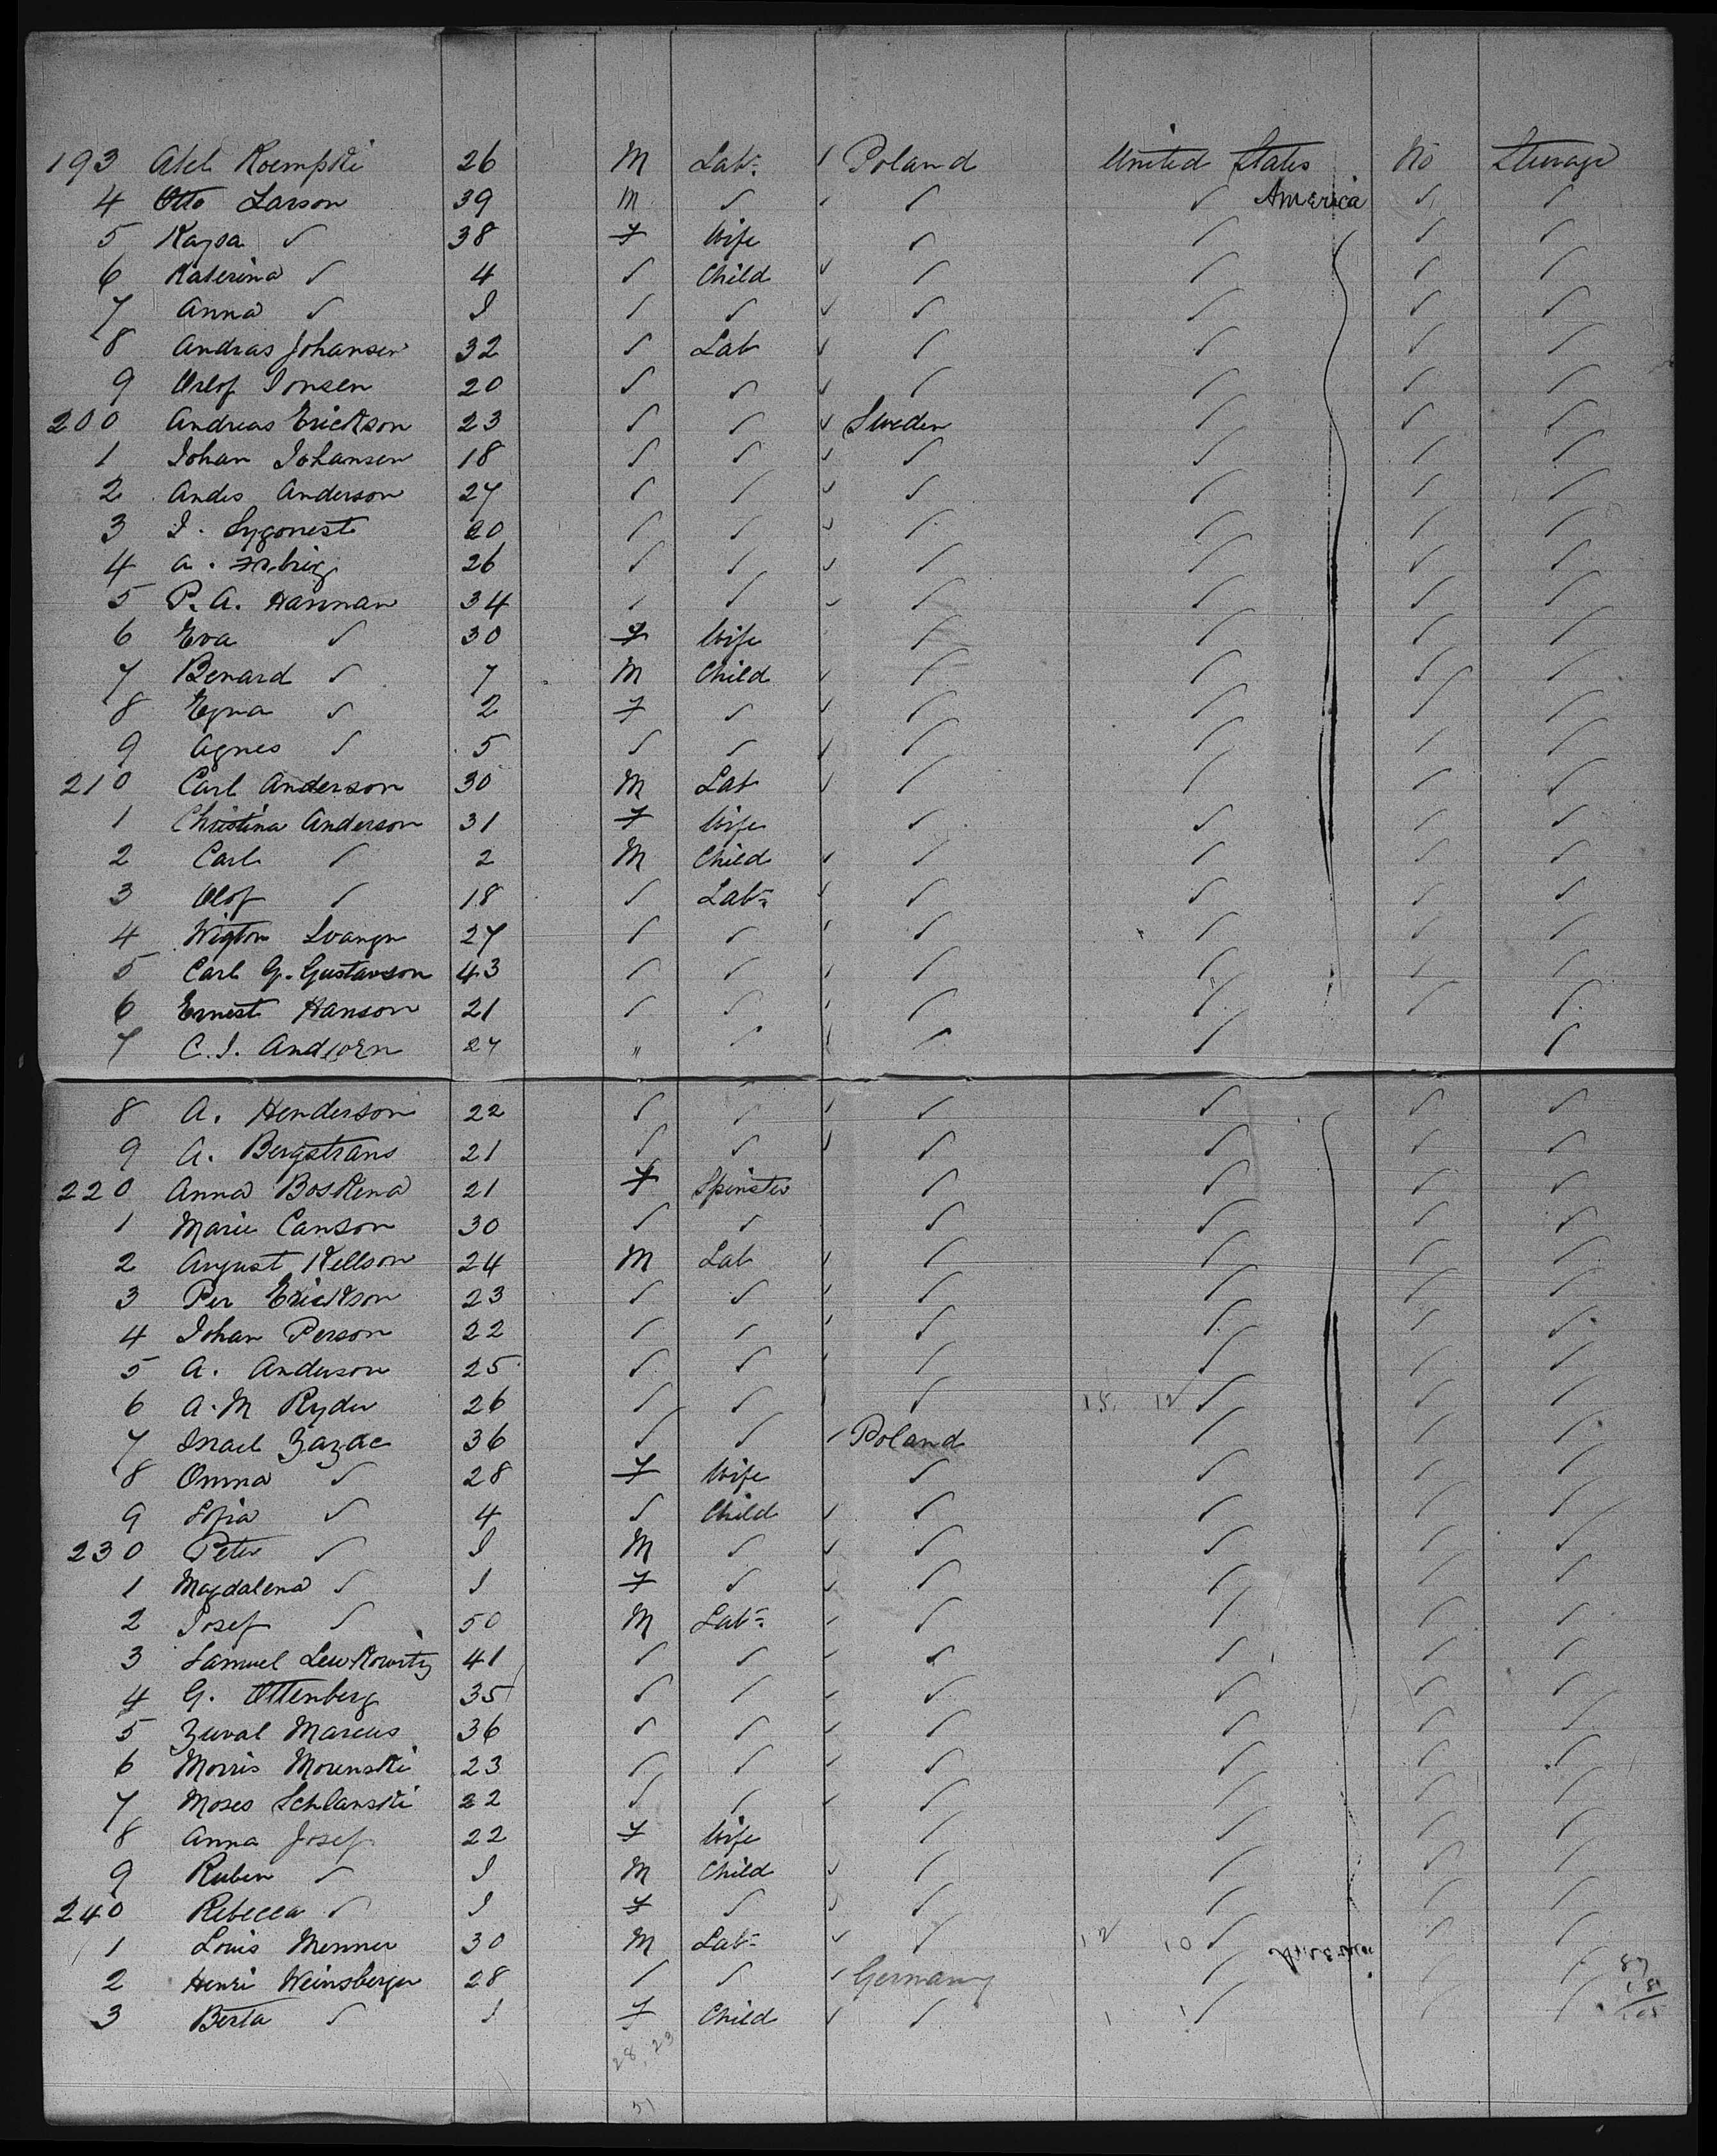 193 Abel Koempski 26 M Lab. Poland United States No Steerage
4 Otto Larson 39 M ✓ ✓ ✓ America ✓ ✓
5 Kaysa ✓ 38 F Wife ✓ ✓ ✓ ✓
6 Katerina ✓ 4 ✓ Child ✓ ✓ ✓ ✓
7 Anna ✓ I ✓ ✓ ✓ ✓ ✓ ✓
8 Andras Johansen 32 ✓ Lab ✓ ✓ ✓ ✓
9 Orlof Jonsen 20 ✓ ✓ ✓ ✓ ✓ ✓
200 Andreas Erickson 23 ✓ ✓ Sweden ✓ ✓ ✓
1 Johan Johansen 18 ✓ ✓ ✓ ✓ ✓ ✓
2 Andes Anderson 27 ✓ ✓ ✓ ✓ ✓ ✓
3 I. Sygonest 20 ✓ ✓ ✓ ✓ ✓ ✓
4 A. 26 ✓ ✓ ✓ ✓ ✓ ✓
5 P. A. Hannan 34 ✓ ✓ ✓ ✓ ✓ ✓
6 Eva ✓ 30 F Wife ✓ ✓ ✓ ✓
7 Benard ✓ 7 M Child ✓ ✓ ✓ ✓
8 Egna ✓ 2 F ✓ ✓ ✓ ✓ ✓
9 Agnes ✓ 5 ✓ ✓ ✓ ✓ ✓ ✓
210 Carl Anderson 30 M Lab ✓ ✓ ✓ ✓
1 Christina Anderson 31 F Wife ✓ ✓ ✓ ✓
2 Carl ✓ 2 M Child ✓ ✓ ✓ ✓
3 Olof ✓ 18 ✓ Lab. ✓ ✓ ✓ ✓
4 Wigton Svangn 27 ✓ ✓ ✓ ✓ ✓ ✓
5 Carl G. Gustavson 43 ✓ ✓ ✓ ✓ ✓ ✓
6 Ernest Hanson 21 ✓ ✓ ✓ ✓ ✓ ✓
7 C. I. 27 " ✓ ✓ ✓ ✓
8 A. Henderson 22 ✓ ✓ ✓ ✓ ✓ ✓
9 A. Bergstrans 21 ✓ ✓ ✓ ✓ ✓ ✓
220 Anna Boskena 21 F Spinster ✓ ✓ ✓ ✓
1 Marie Canson 30 ✓ ✓ ✓ ✓ ✓ ✓
2 August Kellson 24 M Lab ✓ ✓ ✓ ✓
3 Per Erickson 23 ✓ ✓ ✓ ✓ ✓ ✓
4 Johan Person 22 ✓ ✓ ✓ ✓ ✓ ✓
5 A. Anderson 25 ✓ ✓ ✓ ✓ ✓ ✓
6 A. M Ryder 26 ✓ ✓ ✓ 15 12 ✓ ✓ ✓
7 Israel Zazac 36 ✓ ✓ Poland ✓ ✓ ✓
8 Onma ✓ 28 F Wife ✓ ✓ ✓ ✓
9 Sofia ✓ 4 ✓ Child ✓ ✓ ✓ ✓
230 Peter ✓ I M ✓ ✓ ✓ ✓ ✓
1 Magdalena ✓ I F ✓ ✓ ✓ ✓ ✓
2 Josef ✓ 50 M Lab. ✓ ✓ ✓ ✓
3 Samuel Lewkowitz 41 ✓ ✓ ✓ ✓ ✓ ✓
4 G. Ottenberg 35 ✓ ✓ ✓ ✓ ✓ ✓
5 Zuval Marcus 36 ✓ ✓ ✓ ✓ ✓ ✓
6 Morris Morenski 23 ✓ ✓ ✓ ✓ ✓ ✓
7 Moses Schlanski 22 ✓ ✓ ✓ ✓ ✓ ✓
8 Anna Josef 22 F Wife ✓ ✓ ✓ ✓
9 Ruben ✓ I M Child ✓ ✓ ✓ ✓
240 Rebecca ✓ I F ✓ ✓ ✓ ✓ ✓
1 Louis Menner 30 M Lab. ✓ 12 10 ✓ America ✓ ✓
2 Henri Weinsberger 28 ✓ ✓ Germany ✓ ✓ ✓ 87
3 Berta ✓ I F Child ✓ 1 1 ✓ ✓ ✓ 18
105
28, 23
51